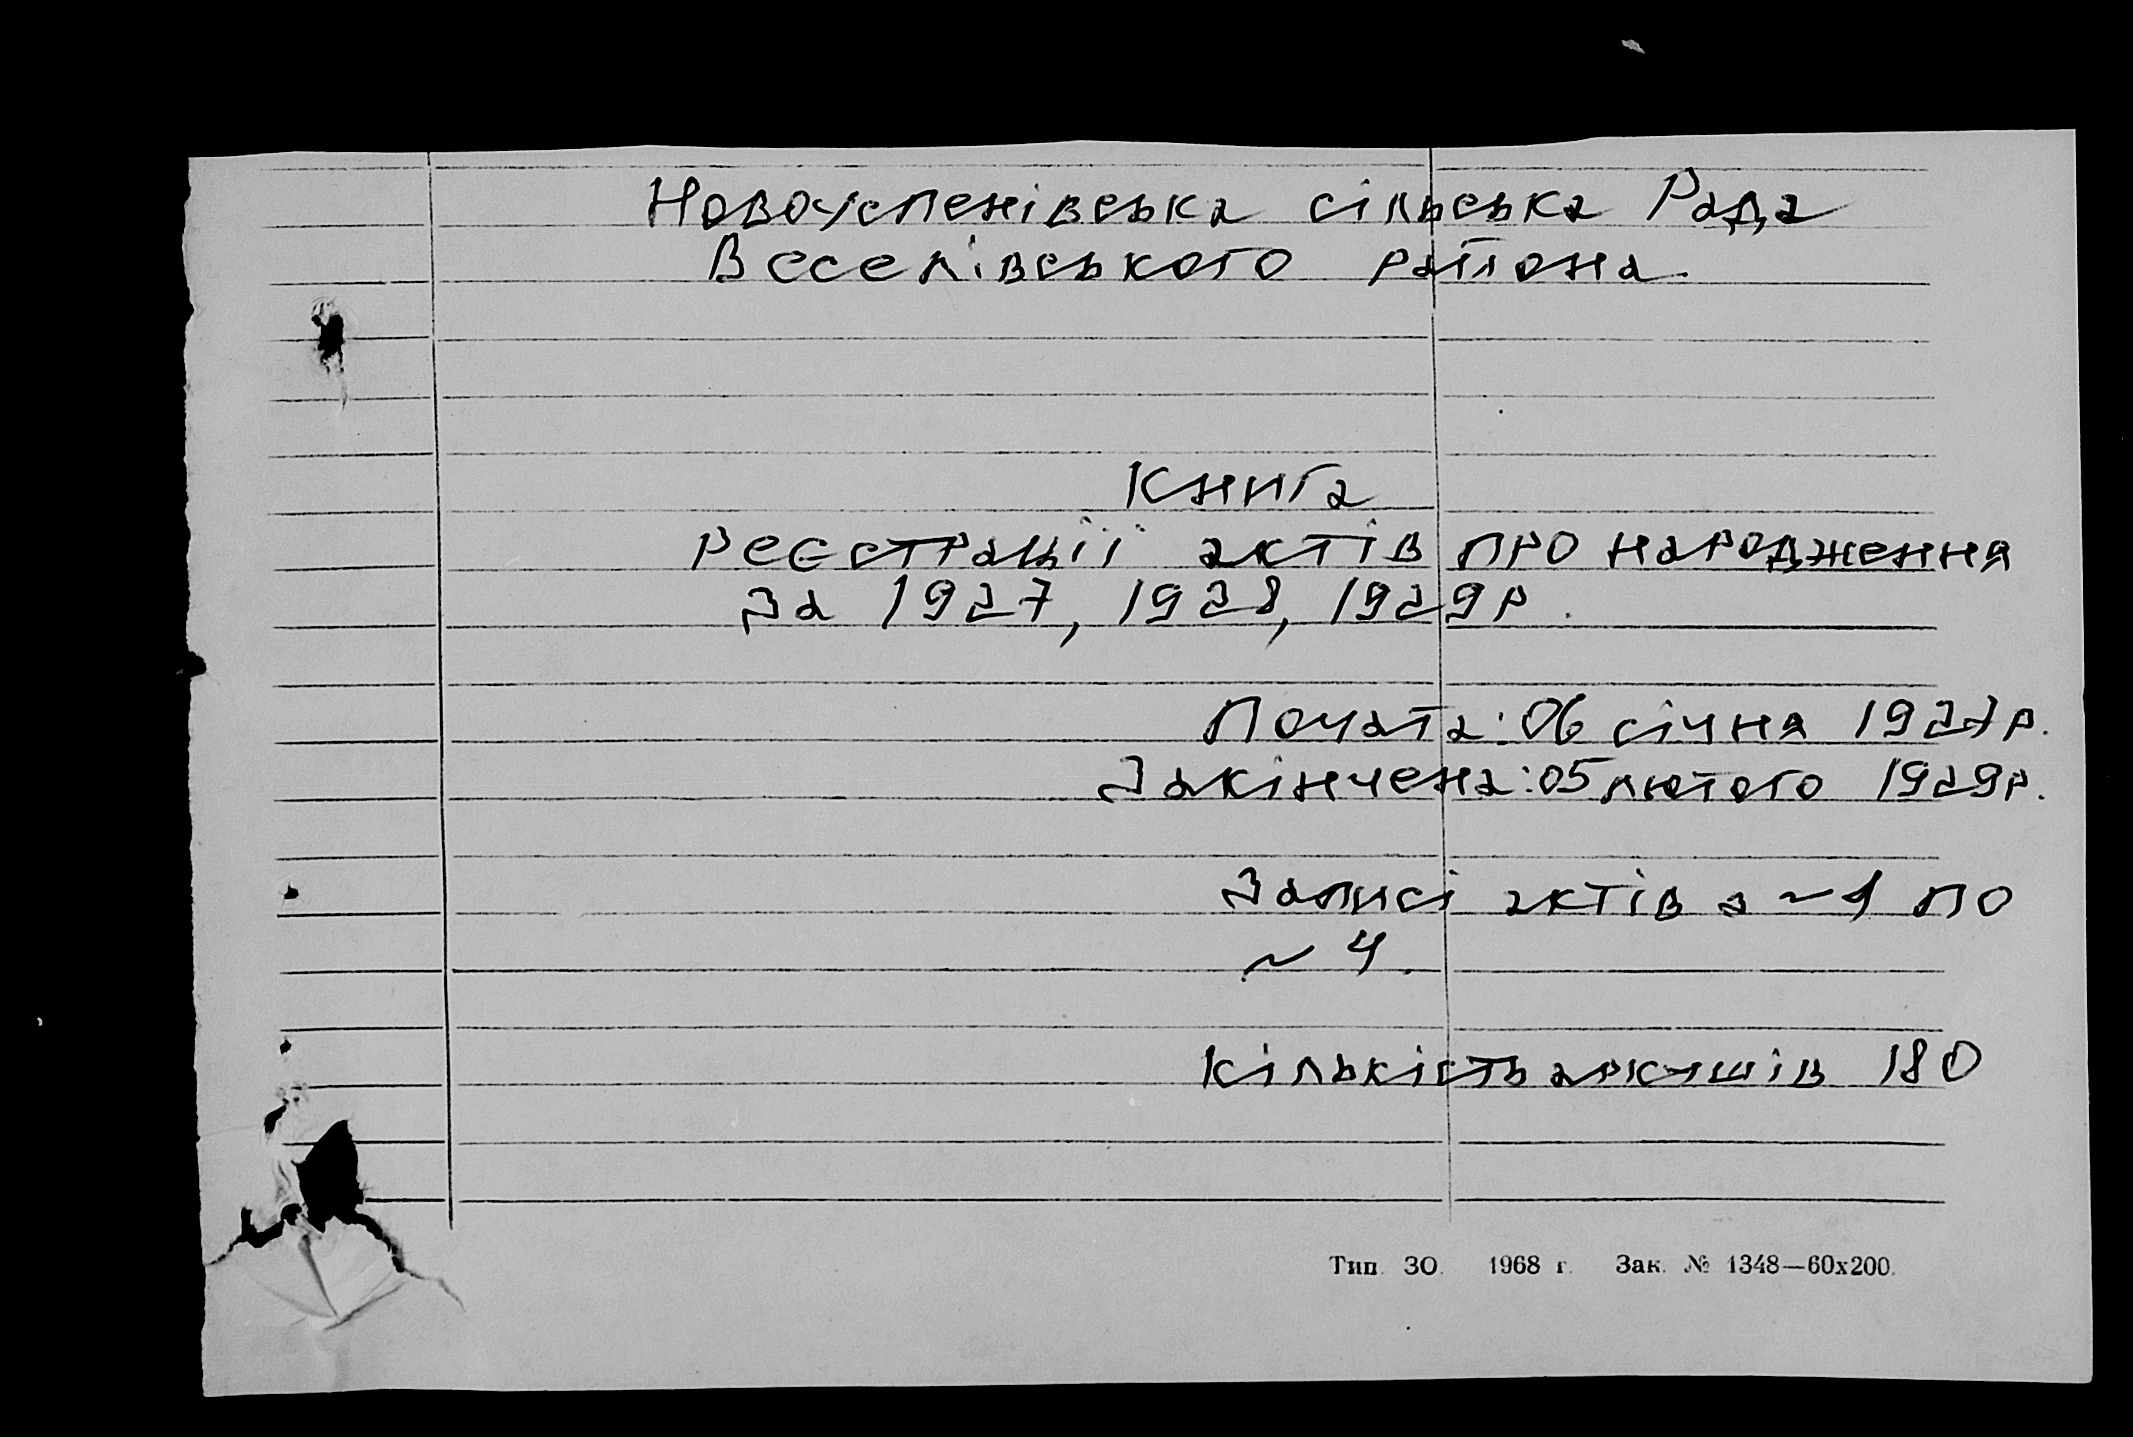 Новоуспенівська сільська Рада
Веселівського района.
Книга
реєстрації актів про народження
за 1927, 1928, 1929 р.
Почата: 06 січня 1927 р.
Закінчена: 05 лютого 1929 р.
Записі актів з № 1 по
№ 4.
Кількість аркушів 180
Тип. ЗО. 1968 г. Зак. № 1348—60х200.